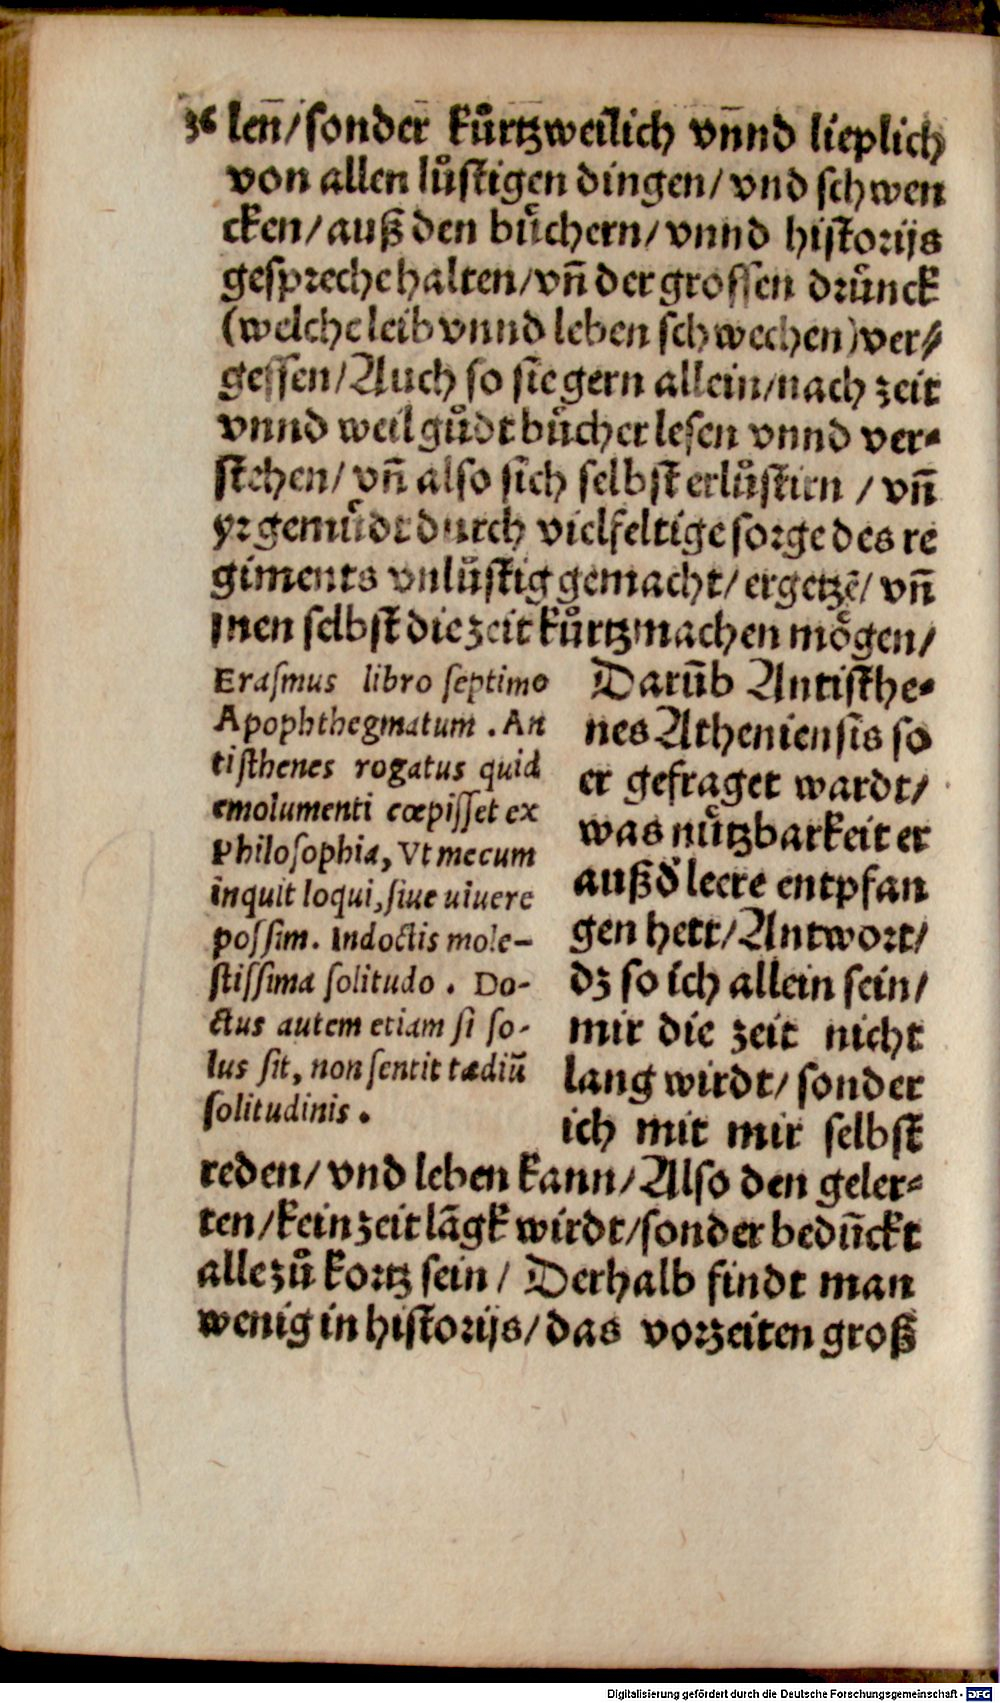 36 len̄/sonder kuͤrtzweilich vn̄nd lieplich
von allen luͤstigen dingen/ vnd schwen
cken/ auß den buͤchern/ vnnd historijs
gespreche halten/vn̄ der grossen druͤnck
(welche leib vnnd leben schwechen)ver⸗
gessen/Auch so sie gern allein/nach zeit
vnnd weil guͦdt buͤcher lesen vnnd ver⸗
stehen/ vn̄ also sich selbst erluͤstirn / vn̄
yr gemuͤdt durch vielfeltige sorge des re
giments vnluͤstig gemacht/ ergetzē/ vn̄
jnen selbst die zeit kuͤrtz machen moͤgen/
Erasmus libro septimo
Apophthegmatum . An
tisthenes rogatus quid
emolumenti cœpisset ex
Philosophia, Vt mecum
inquit loqui, siue uiuere
possim. Indoctis mole-
stissima solitudo . Do-
ctus autem etiam si so-
lus sit, non sentit tædiū
solitudinis .
Darūb Antisthe⸗
nes Atheniensis so
er gefraget wardt/
was nuͤtzbarkeit er
auß d̕ leere entpfan
gen hett/Antwort/
dz so ich allein sein/
mir die zeit nicht
lang wirdt/ sonder
ich mit mir selbst
reden/ vnd leben kann/Also den geler⸗
ten/kein zeit lāgk wirdt/sonder bedūckt
alle zuͦ kortz sein / Derhalb findt man
wenig in historijs/das vorzeiten groß
Digitalisierung gefördert durch die Deutsche Forschungsgemeinschaft - DFG